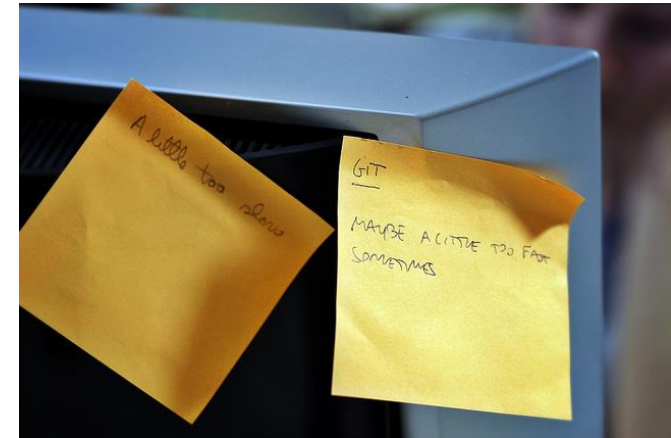 A little too slow
GIT
MAYBE A LITTLE TOO FAST
SOMETIMES